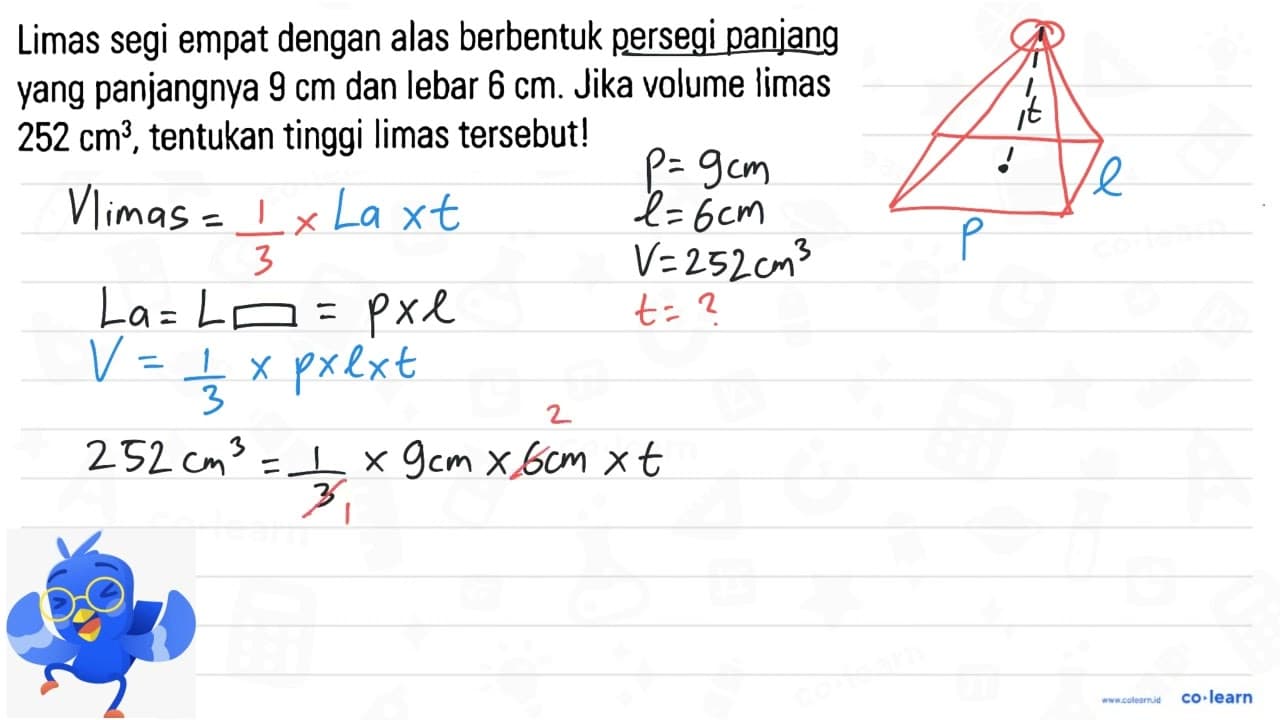 Limas segi empat dengan alas berbentuk persegi panjang
yang panjangnya 9 cm dan lebar 6 cm. Jika volume limas
252 cm³, tentukan tinggi limas tersebut!
t
l
p
p = 9 cm
l = 6 cm
V = 252 cm³
t = ?
Vlimas = 1/3 × La × t
La = L▭ = p × l
V = 1/3 × p × l × t
2
252 cm³ = 1/3 × 9 cm × 6 cm × t
1
www.colearn.id co·learn